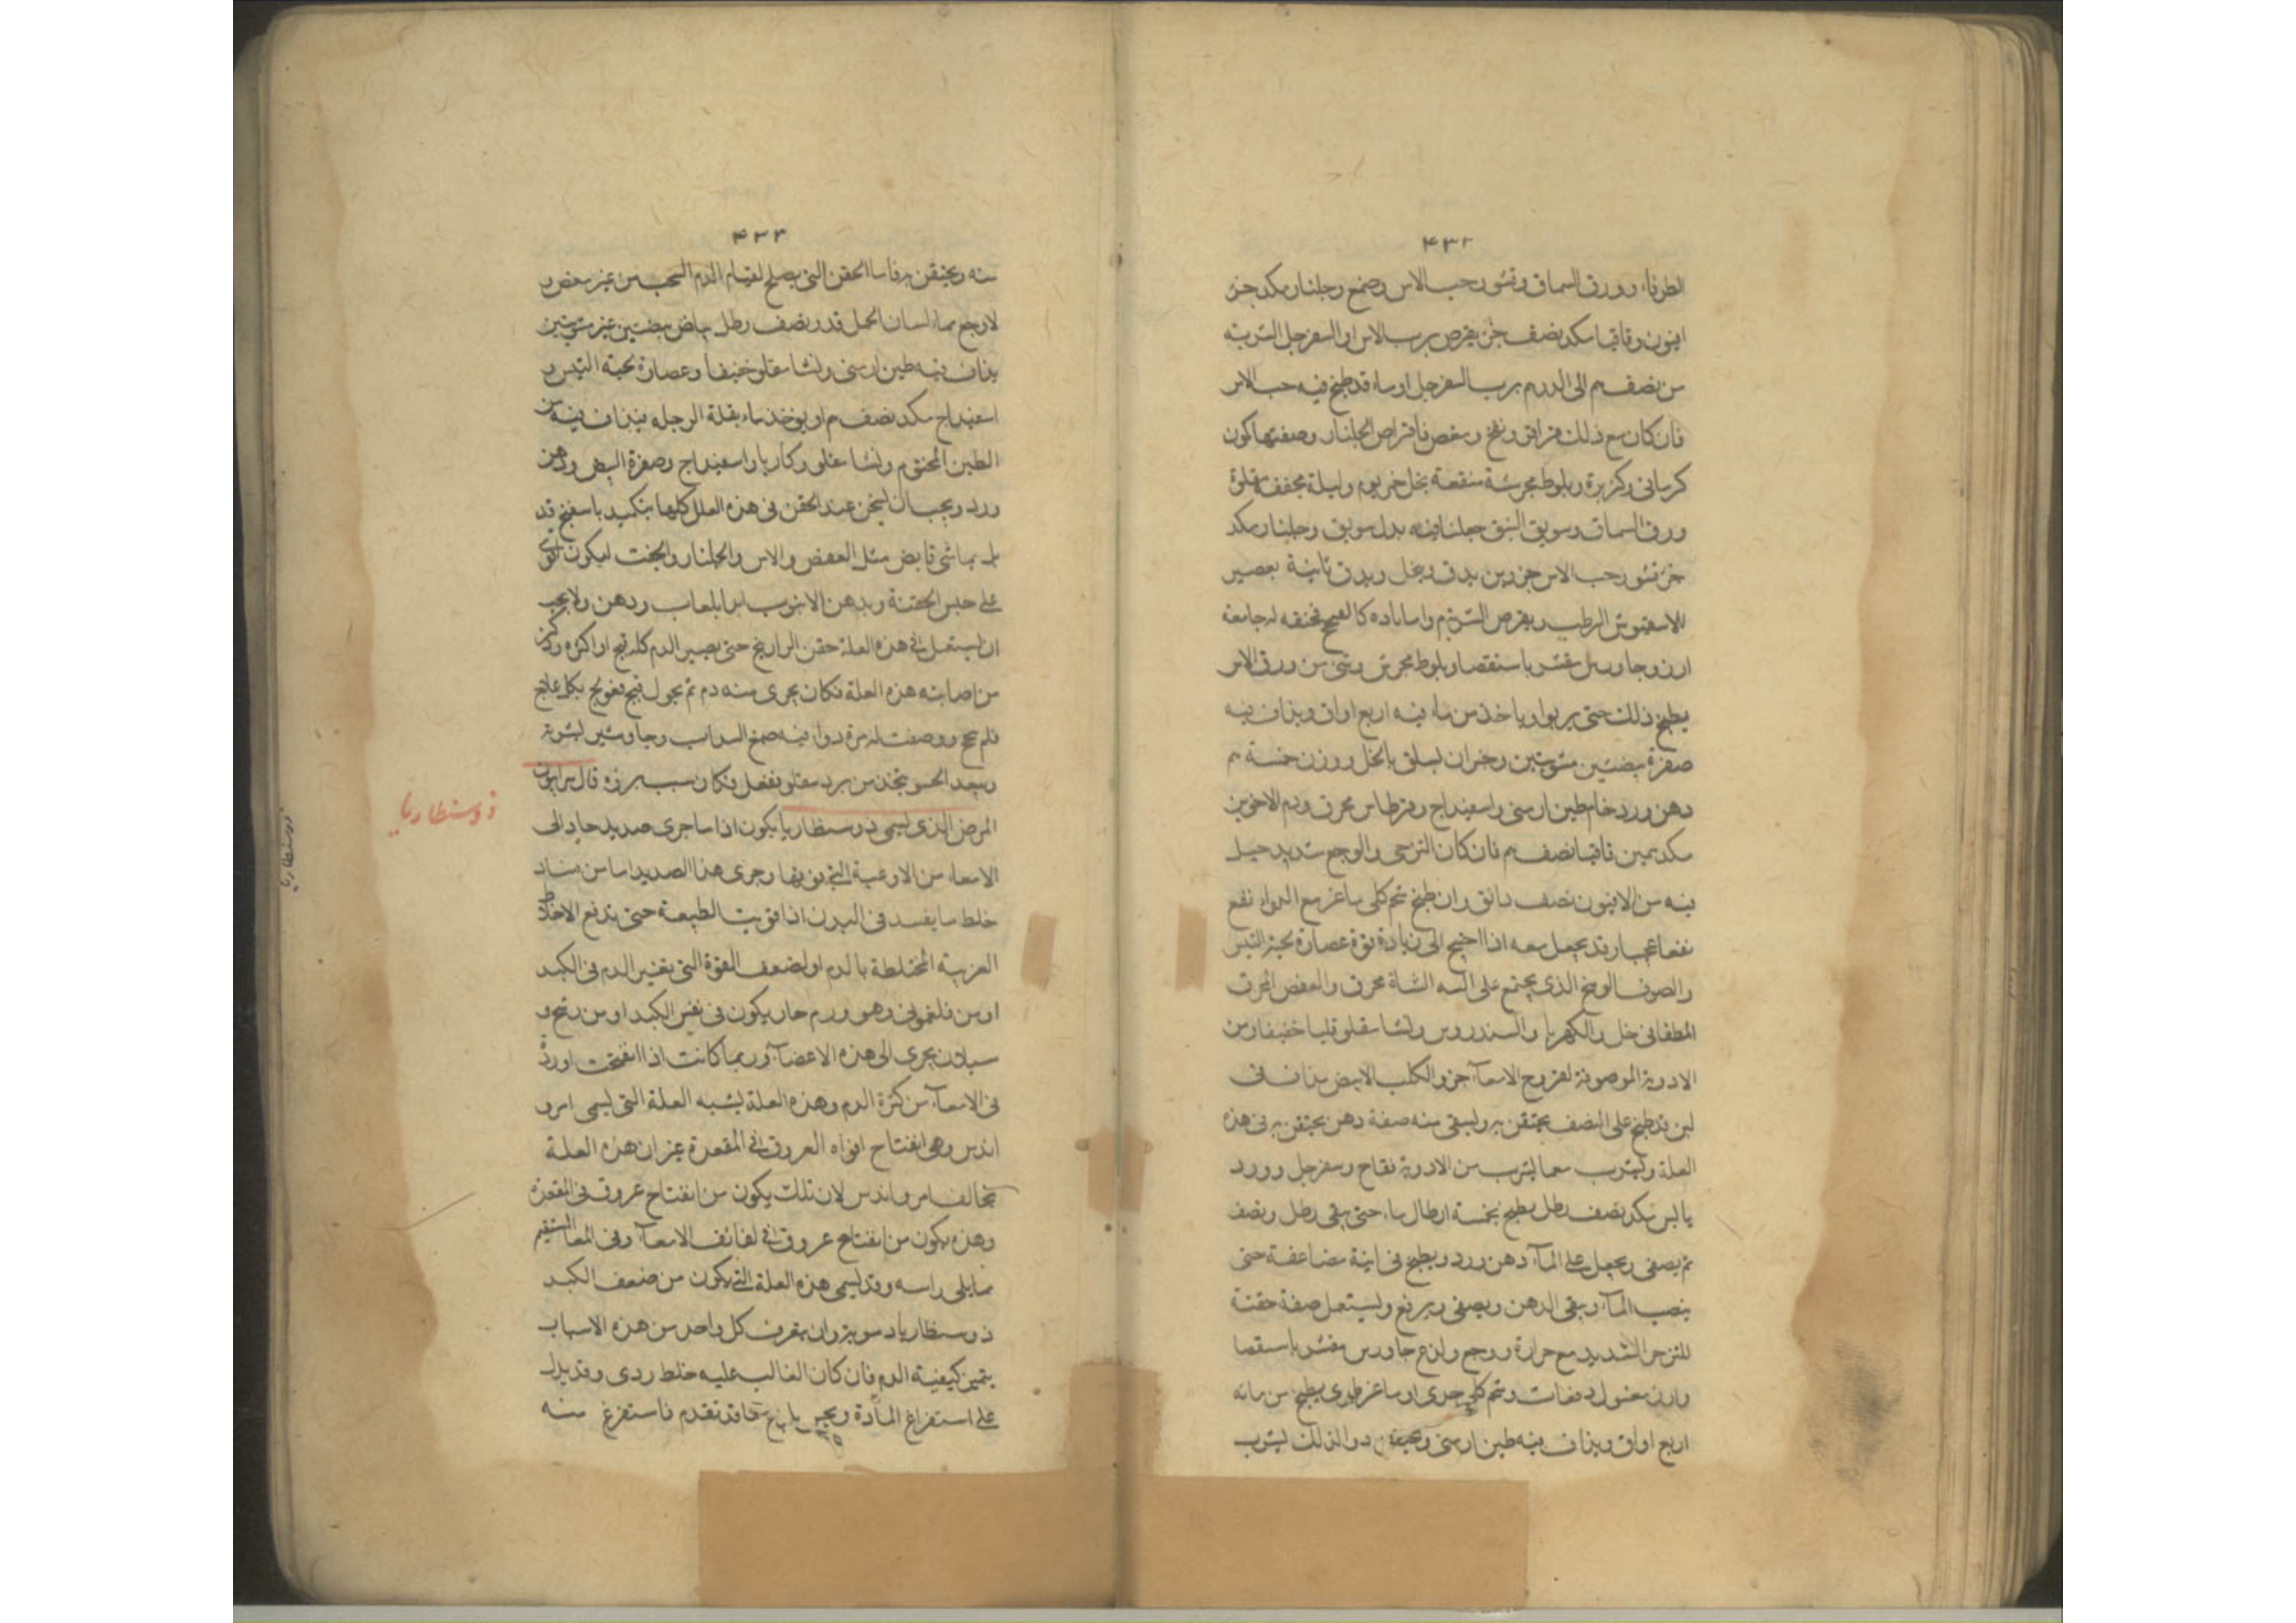 ۴۳۲
الطرفاء وورق السماق وقشور حب الاس وصمغ وجلنار مكد جزء
افيون وقاقيا مكد نصف جزء يقرص برب الاس او السفرجل الشربة
من نصف م الى الدرهم برب السفرجل او ماء قد طبخ فيه حب الاس
فان كان مع ذلك قراقر ونفخ ومغص فاقراص الجلنار وصفتها كمون
كرمانى وكزبرة وبلوط مجرشة منقعة بخل خمر يوم وليلة مجففة مقلوة
ورق السماق وسويق النبق جعلنا فيه بدل سويق وجلنار مكد
جزء قشور حب الاس جزوين يدق وينخل ويدق ثانية بعصير
الرطب ويقرص الشربة م واما
ارز وجاورس مقشر باستقصا وبلوط مجرش وشى من ورق الاس
يطبخ ذلك حتى يربوا وياخذ من مائه اربع اواق ويذاف فيه
صفرة بيضتين مشويتين وخبران ليسلق بالخل ووزن خمسة م
دهن ورد خام طين ارمنى واسفيداج وقرطاس محرق ودم الاخوين
مكد درهمين قاقيا نصف م فان كان التزحر والوجع شديد جعل
فيه من الافيون نصف دانق وان طبخ شحم كلى ماعز مع الدواء نفع
نفعا عجيبا وقد يجعل معه اذا احتيج الى زيادة قوة عصارة لحية التيس
والصوف الوسخ الذى يجتمع على الية الشاة محرق والعفص المحرق
المطفا فى خل والكهربا والسندروس ونشا مقلو قليا خفيفا ومن
الادوية الموصوفة لقروح الامعآ جزو الكلب الابيض يذاف فى
لبن قد طبخ على النصف يحتقن به ويسقى منه صفة دهن يحتقن به فى هذه
العلة ويشرب مما يشرب من الادوية تفاح وسفرجل وورد
يابس مكد نصف رطل يطبخ بخمسة ارطال ماء حتى يبقى رطل ونصف
ثم يصفى ويجعل على المآء دهن ورد ويطبخ فى انية مضاعفة حتى
ينصب المآء ويبقى الدهن ويصفى ويرفع ويستعمل صفة حقنة
للتزحر الشديد مع حرارة ووجع ولذع جاورس مقشر باستقصا
وارز مغسول دفعات وشحم كلى جدى او ماعز طرى يطبخ من مائه
اربع اواق ويذاف فيه طين ارمنى ويحتقن دوا لذلك يشرب
۴۳۳
منه ويحتقن به فاما الحقن التى يصلح لقيام الدم السحب من غير مغص و
لا وجع بماء لسان الحمل قدر نصف رطل بياض بيضتين غير مشويتين
يذاف فيه طين ارمنى ونشا مقلو خفيفا وعصارة لحية التيس و
اسفيداج مكد نصف م او يوخذ ماء بقلة الرجله فيذاف فيه من
الطين المختوم ونشا مقلو وكاربا واسفيداج وصفرة البيض ودهن
ورد ويجب ان ليسخن عند الحقن فى هذه العلل كلها بتكميد باسفنج قد
بل بماء شى قابض مثل العفص والاس والجلنار والجفت ليكون اقوى
على حبس الحقنة ويدهن الانبوب ابدا بلعاب ودهن ولا يجب
ان ليستعمل فى هذه العلة حقن الزرانيخ حتى يصير الدم كله قيح او اكثره وذكر
من اصابته هذه العلة فكان يجرى منه دم ثم يحول قيح فعولج بكل علاج
فلم ينجح ووصفت له مرة دواء فيه صمغ السداب وجاوشير ليشربه
وبعد الحسو يتخذ من برد مقلو ففعل فكان سبب برؤه قال سرابيون
المرض الذى يسمى ذوسنطاريا يكون اذا ما جرى صديد حاد الى
الامعاء من الاوعية التى فوقها وجرى هذا الصديد اما من فساد
خلط ما يفسد فى البدن اذا قويت الطبيعة حتى تدفع الاخلاط
الغريبة المختلطة بالدم او لضعف القوة التى يغير الدم فى الكبد
او من فلغمونى وهو ورم حار يكون فى نفس الكبد او من ريح و
سيلان يجرى الى هذه الاعضآء وربما كانت اذا انفتحت اوردة
فى الامعآء من كثرة الدم وهذه العلة ليشبه العلة التى ليسمى امرو
اندس وهى انفتاح افواه العروق فى المقعدة غير ان هذه العلة
تخالف امرواندس لان تلك يكون من انفتاح عروق فى المقعدة
وهذه يكون من انفتاح عروق فى لفائف الامعآء وفى المعا المستقيم
مما يلى راسه وقد ليسمى هذه العلة التى يكون من ضعف الكبد
ذوسنطاريا دموية وان يعرف كل واحد من هذه الاسباب
يتميز كيفية الدم فان كان الغالب عليه خلط ردى وقد يدل
على استفراغ المآدة فاستفرغ منه
ذوسنطاريا
ذوسنطاريا